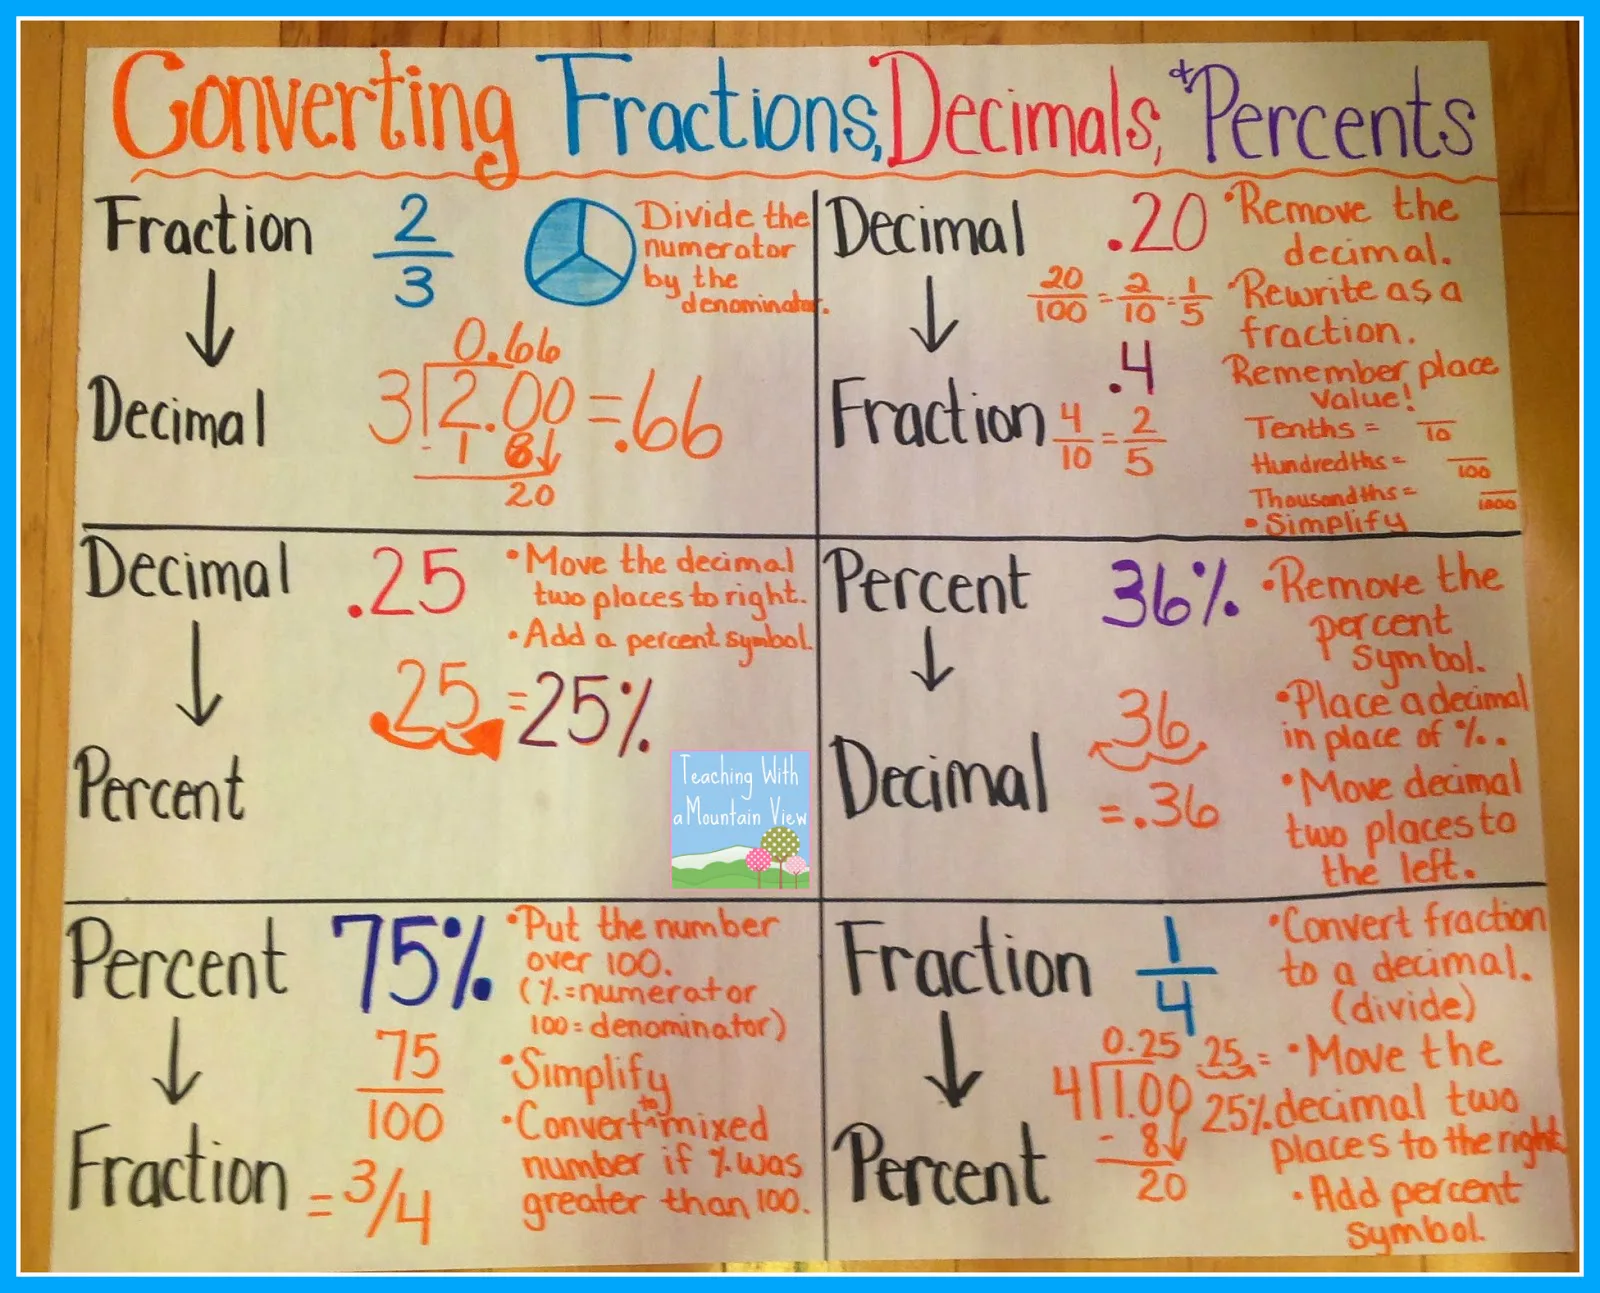 Converting Fractions, Decimals, + Percents
Fraction
2
3
Divide the
numerator
by the
denominator.
Decimal
0.66
3 2.00 = .66
- 1 8
20
Decimal
.20
• Remove the
decimal.
20/100 = 2/10 = 1/5
• Rewrite as a
fraction.
Fraction
.4
4/10 = 2/5
Remember place
value!
Tenths = /10
Hundredths = /100
Thousandths = /1000
• Simplify
Decimal
.25
• Move the decimal
two places to right.
• Add a percent symbol.
.25 = 25%
Percent
Teaching With
a Mountain View
Percent
36%
• Remove the
percent
symbol.
Decimal
36
= .36
• Place a decimal
in place of %.
• Move decimal
two places to
the left.
Percent
75%
• Put the number
over 100.
(%=numerator
100=denominator)
75
100
• Simplify
• Convert to mixed
number if % was
greater than 100.
Fraction
= 3/4
Fraction
1
4
• Convert fraction
to a decimal.
(divide)
0.25
4 1.00
- 8
20
.25 =
25%
• Move the
decimal two
places to the right
• Add percent
symbol.
Percent